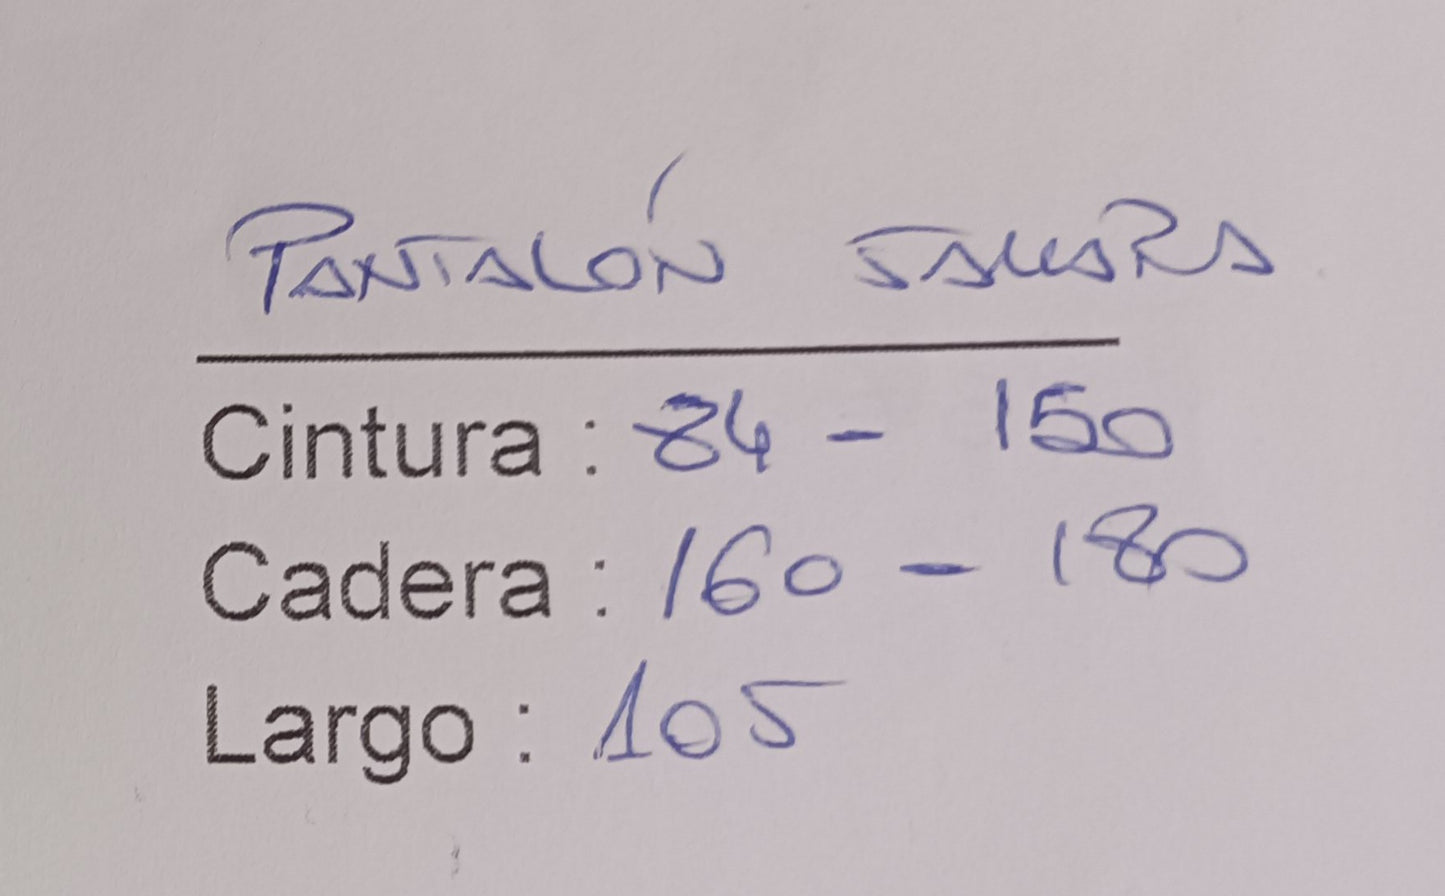 PANTALÓN SAHARA
Cintura : 84 - 150
Cadera : 160 - 180
Largo : 105